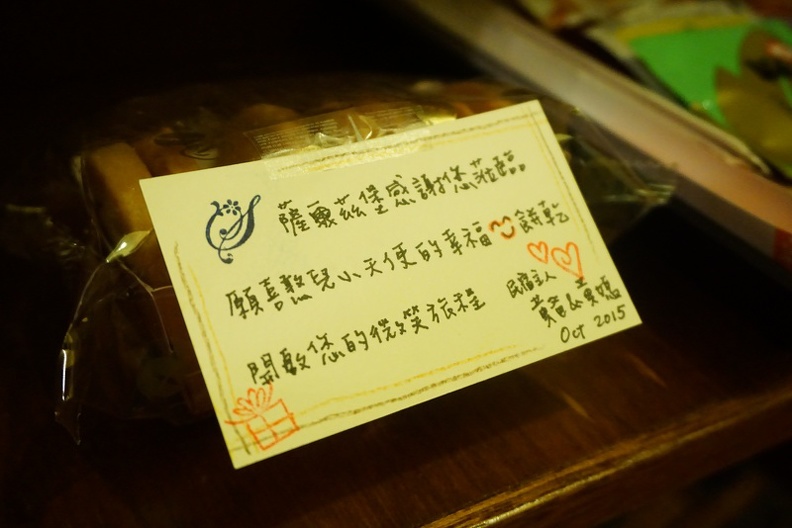 薩爾茲堡感謝您蒞臨
願喜憨兒小天使的幸福餅乾
開啟您的微笑旅程
民宿主人
黃爸&黃媽
Oct 2015